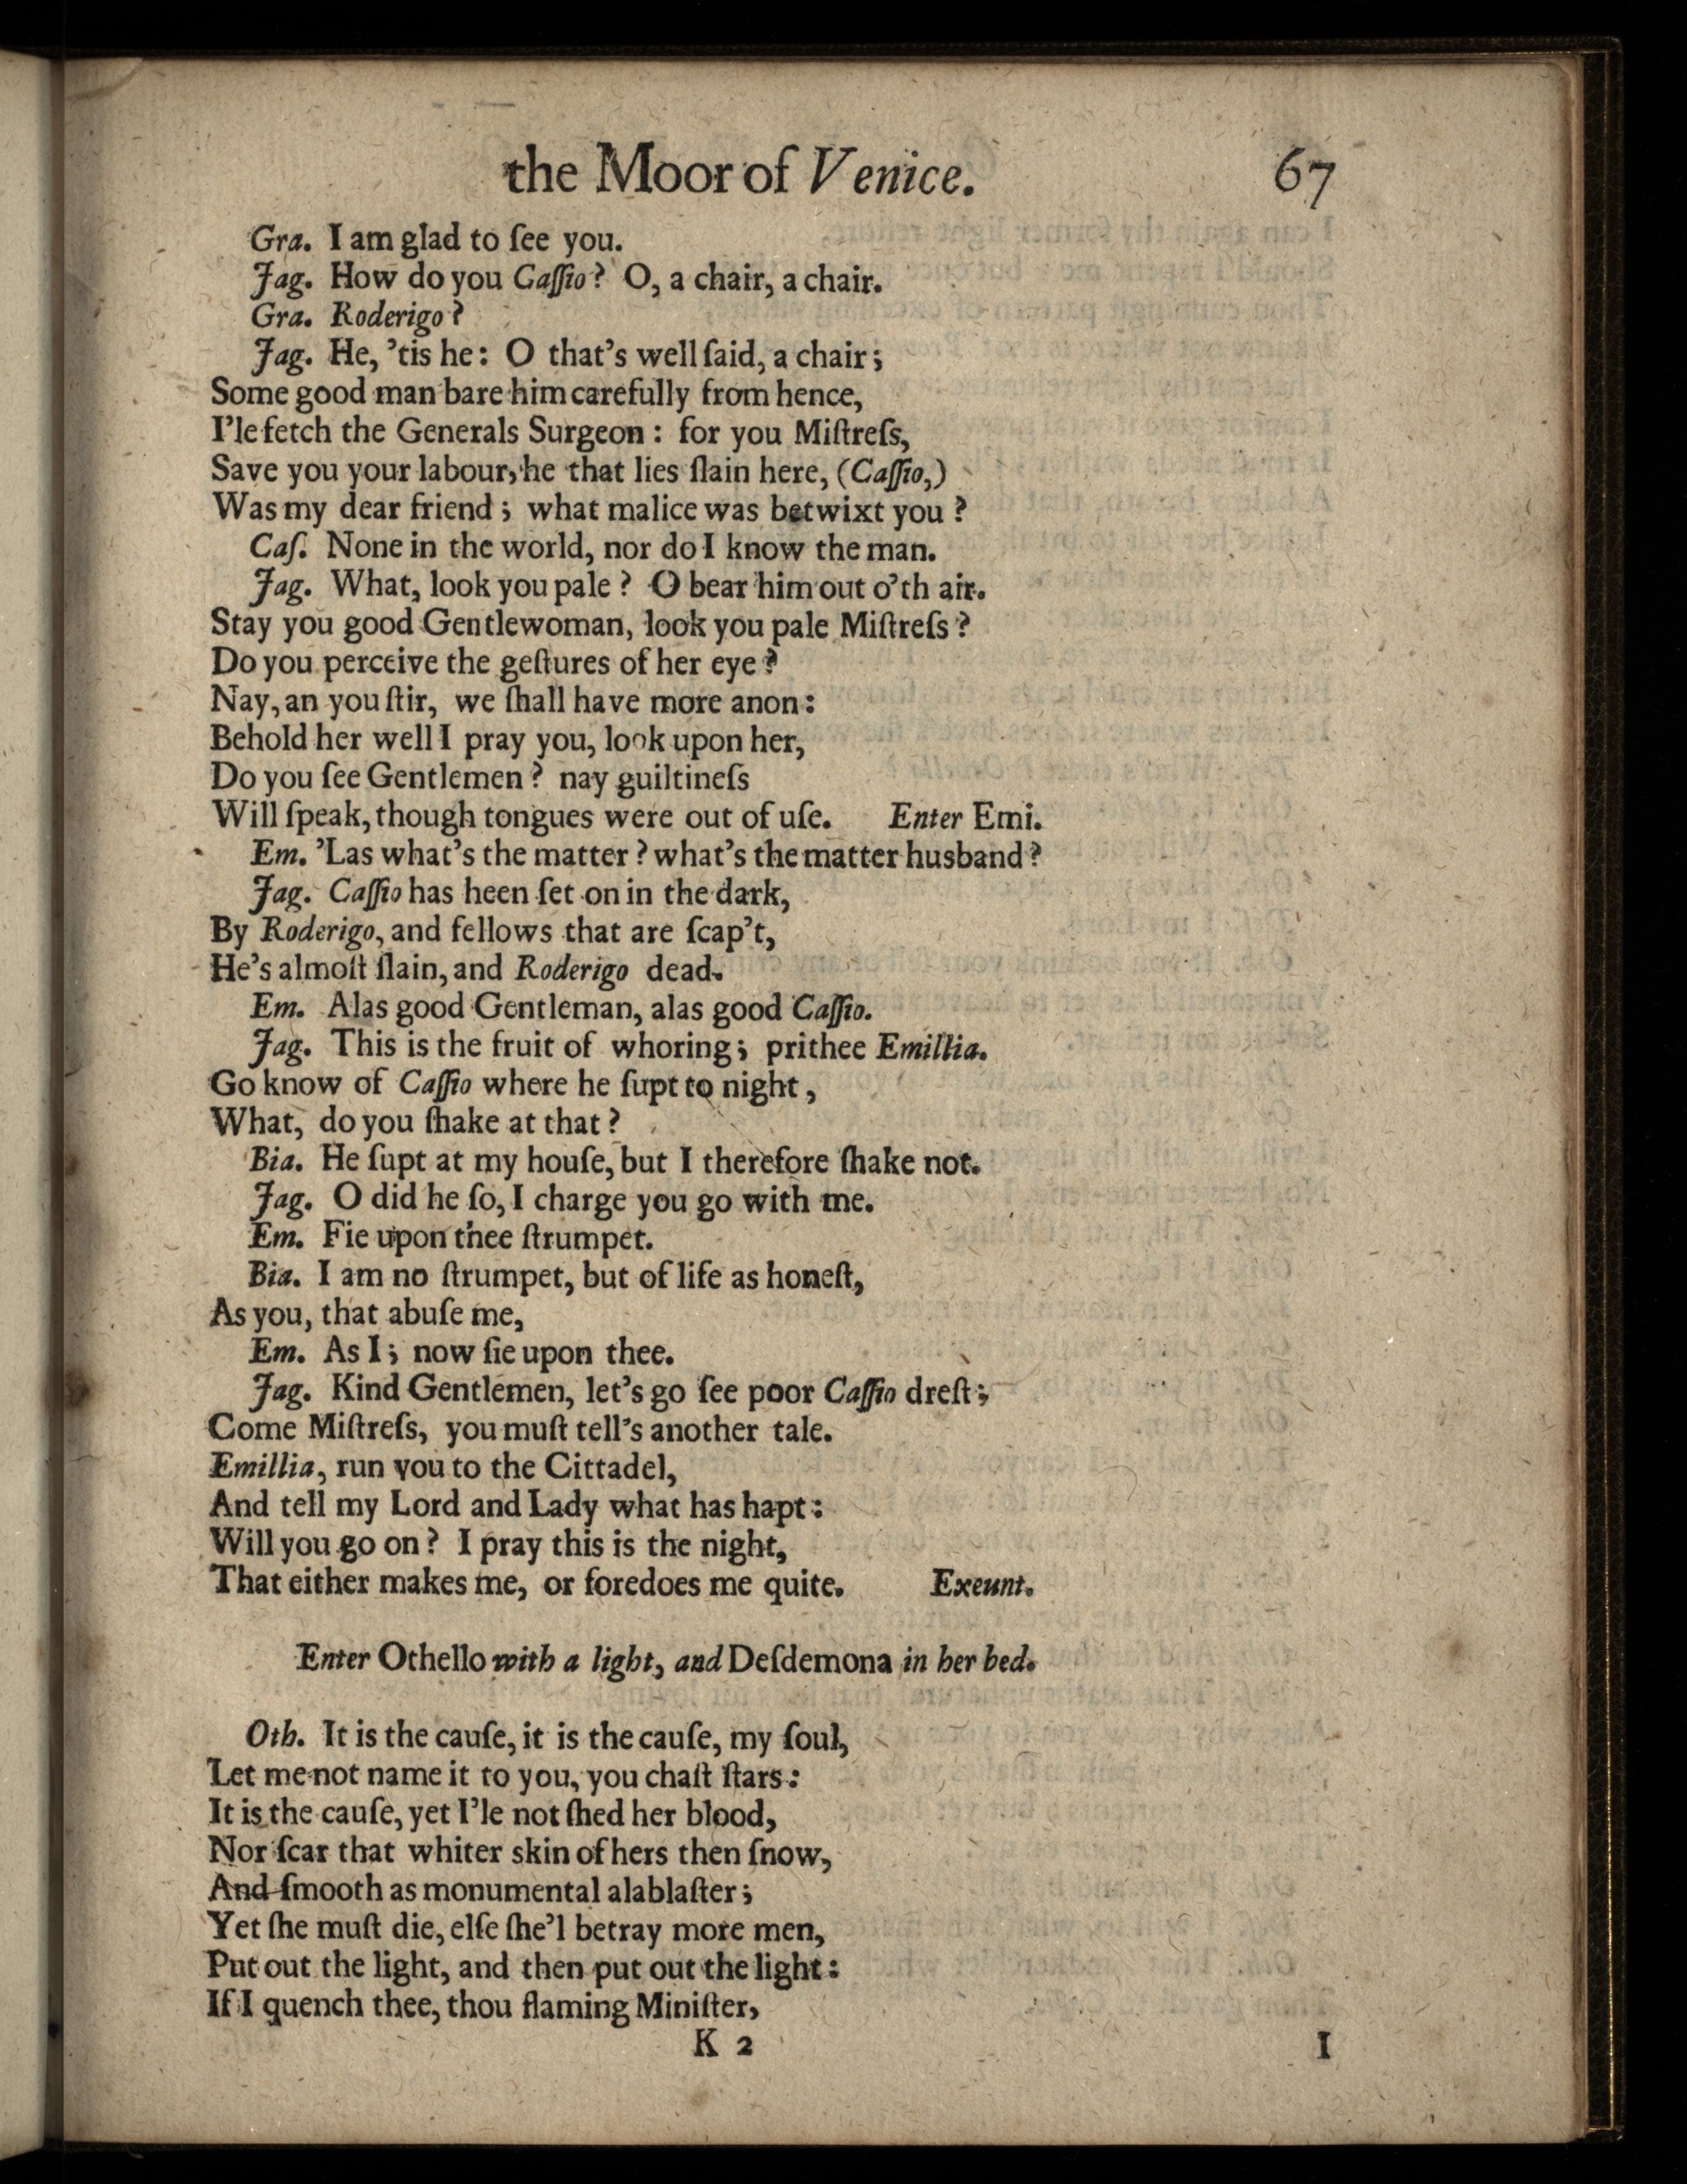 the Moor of Venice. 67
Gra. I am glad to ſee you.
Jag. How do you Caſſio? O, a chair, a chair.
Gra. Roderigo?
Jag. He, 'tis he: O that's well ſaid, a chair;
Some good man bare him carefully from hence,
I'le fetch the Generals Surgeon: for you Miſtreſs,
Save you your labour, he that lies ſlain here, (Caſſio,)
Was my dear friend; what malice was betwixt you?
Caſ. None in the world, nor do I know the man.
Jag. What, look you pale? O bear him out o'th air.
Stay you good Gentlewoman, look you pale Miſtreſs?
Do you perceive the geſtures of her eye?
Nay, an you ſtir, we ſhall have more anon:
Behold her well I pray you, look upon her,
Do you ſee Gentlemen? nay guiltineſs
Will ſpeak, though tongues were out of uſe. Enter Emi.
Em. 'Las what's the matter? what's the matter husband?
Jag. Caſſio has heen ſet on in the dark,
By Roderigo, and fellows that are ſcap't,
He's almoſt ſlain, and Roderigo dead.
Em. Alas good Gentleman, alas good Caſſio.
Jag. This is the fruit of whoring; prithee Emillia.
Go know of Caſſio where he ſupt to night,
What, do you ſhake at that?
Bia. He ſupt at my houſe, but I therefore ſhake not.
Jag. O did he ſo, I charge you go with me.
Em. Fie upon thee ſtrumpet.
Bia. I am no ſtrumpet, but of life as honeſt,
As you, that abuſe me,
Em. As I; now fie upon thee.
Jag. Kind Gentlemen, let's go ſee poor Caſſio dreſt;
Come Miſtreſs, you muſt tell's another tale.
Emillia, run you to the Cittadel,
And tell my Lord and Lady what has hapt:
Will you go on? I pray this is the night,
That either makes me, or foredoes me quite. Exeunt.
Enter Othello with a light, and Deſdemona in her bed.
Oth. It is the cauſe, it is the cauſe, my ſoul,
Let me not name it to you, you chaſt ſtars:
It is the cauſe, yet I'le not ſhed her blood,
Nor ſcar that whiter skin of hers then ſnow,
And ſmooth as monumental alablaſter;
Yet ſhe muſt die, elſe ſhe'l betray more men,
Put out the light, and then put out the light:
If I quench thee, thou flaming Miniſter,
K 2 I